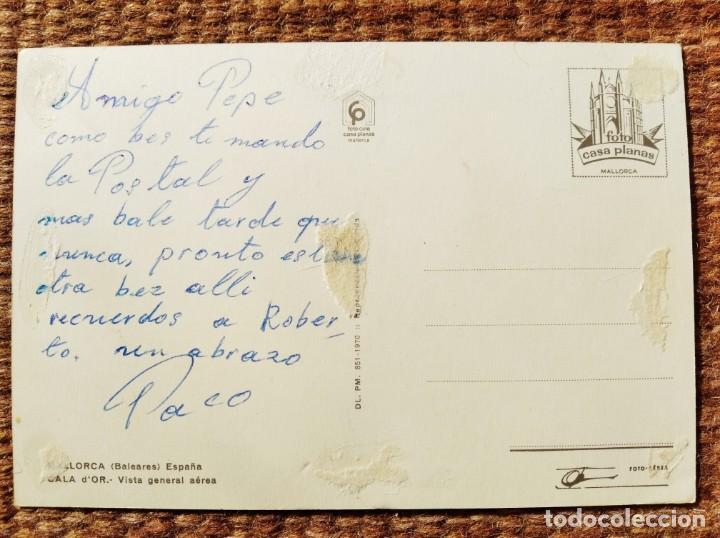 Amigo Pepe
como bes te mando
la Postal y
mas bale tarde que
nunca, pronto
otra bez alli
recuerdos a Rober-
to. un abrazo
Paco
foto cine
casa planas
mallorca
foto
casa planas
MALLORCA
DL. PM. 851-1970
MALLORCA (Baleares) España
CALA d'OR.- Vista general aérea
FOTO-AÉREA
todocoleccion.net